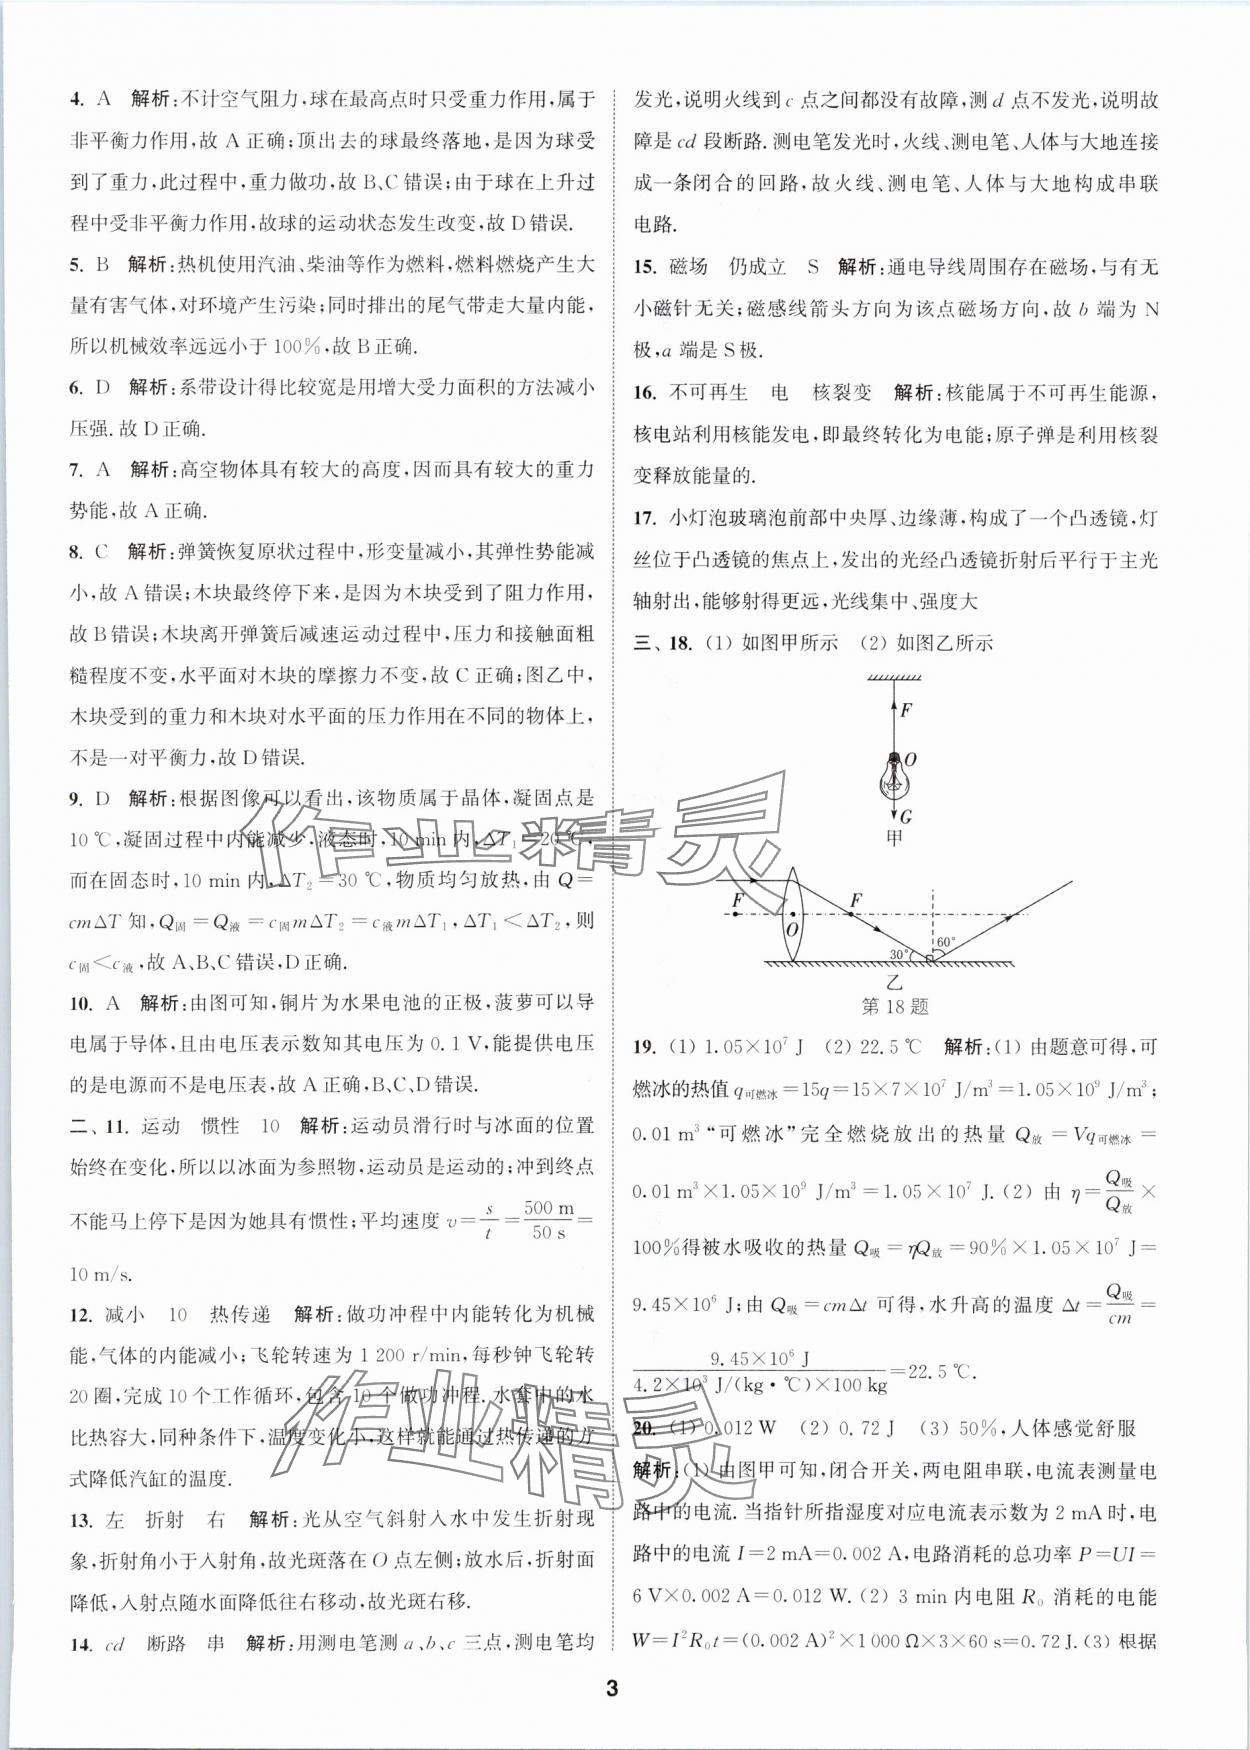 4. A 解析:不计空气阻力,球在最高点时只受重力作用,属于
非平衡力作用,故 A 正确;顶出去的球最终落地,是因为球受
到了重力,此过程中,重力做功,故 B、C 错误;由于球在上升过
程中受非平衡力作用,故球的运动状态发生改变,故 D 错误.
5. B 解析:热机使用汽油、柴油等作为燃料,燃料燃烧产生大
量有害气体,对环境产生污染;同时排出的尾气带走大量内能,
所以机械效率远远小于 100%,故 B 正确.
6. D 解析:系带设计得比较宽是用增大受力面积的方法减小
压强.故 D 正确.
7. A 解析:高空物体具有较大的高度,因而具有较大的重力
势能,故 A 正确.
8. C 解析:弹簧恢复原状过程中,形变量减小,其弹性势能减
小,故 A 错误;木块最终停下来,是因为木块受到了阻力作用,
故 B 错误;木块离开弹簧后减速运动过程中,压力和接触面粗
糙程度不变,水平面对木块的摩擦力不变,故 C 正确;图乙中,
木块受到的重力和木块对水平面的压力作用在不同的物体上,
不是一对平衡力,故 D 错误.
9. D 解析:根据图像可以看出,该物质属于晶体,凝固点是
10 ℃,凝固过程中内能减少.液态时,10 min 内,ΔT₁=20 ℃,
而在固态时,10 min 内,ΔT₂=30 ℃,物质均匀放热,由 Q=
cmΔT 知,Q固=Q液=c固mΔT₂=c液mΔT₁,ΔT₁<ΔT₂,则
c固<c液,故 A、B、C 错误,D 正确.
10. A 解析:由图可知,铜片为水果电池的正极,菠萝可以导
电属于导体,且由电压表示数知其电压为 0.1 V,能提供电压
的是电源而不是电压表,故 A 正确,B、C、D 错误.
二、11. 运动 惯性 10 解析:运动员滑行时与冰面的位置
始终在变化,所以以冰面为参照物,运动员是运动的;冲到终点
不能马上停下是因为她具有惯性;平均速度 v=s/t=500 m/50 s=
10 m/s.
12. 减小 10 热传递 解析:做功冲程中内能转化为机械
能,气体的内能减小;飞轮转速为 1 200 r/min,每秒钟飞轮转
20 圈,完成 10 个工作循环,包含 10 个做功冲程.水套中的水
比热容大,同种条件下,温度变化小,这样就能通过热传递的方
式降低汽缸的温度.
13. 左 折射 右 解析:光从空气斜射入水中发生折射现
象,折射角小于入射角,故光斑落在 O 点左侧;放水后,折射面
降低,入射点随水面降低往右移动,故光斑右移.
14. cd 断路 串 解析:用测电笔测 a、b、c 三点,测电笔均
发光,说明火线到 c 点之间都没有故障,测 d 点不发光,说明故
障是 cd 段断路.测电笔发光时,火线、测电笔、人体与大地连接
成一条闭合的回路,故火线、测电笔、人体与大地构成串联
电路.
15. 磁场 仍成立 S 解析:通电导线周围存在磁场,与有无
小磁针无关;磁感线箭头方向为该点磁场方向,故 b 端为 N
极,a 端是 S 极.
16. 不可再生 电 核裂变 解析:核能属于不可再生能源,
核电站利用核能发电,即最终转化为电能;原子弹是利用核裂
变释放能量的.
17. 小灯泡玻璃泡前部中央厚、边缘薄,构成了一个凸透镜,灯
丝位于凸透镜的焦点上,发出的光经凸透镜折射后平行于主光
轴射出,能够射得更远,光线集中、强度大
三、18. (1) 如图甲所示 (2) 如图乙所示
F
O
G
甲
F F
O 30° 60°
乙
第 18 题
19. (1) 1.05×10⁷ J (2) 22.5 ℃ 解析:(1) 由题意可得,可
燃冰的热值 q可燃冰=15q=15×7×10⁷ J/m³=1.05×10⁹ J/m³;
0.01 m³“可燃冰”完全燃烧放出的热量 Q放=Vq可燃冰=
0.01 m³×1.05×10⁹ J/m³=1.05×10⁷ J.(2) 由 η=Q吸/Q放×
100%得被水吸收的热量 Q吸=ηQ放=90%×1.05×10⁷ J=
9.45×10⁶ J;由 Q吸=cmΔt 可得,水升高的温度 Δt=Q吸/cm=
9.45×10⁶ J/4.2×10³ J/(kg·℃)×100 kg=22.5 ℃.
20. (1) 0.012 W (2) 0.72 J (3) 50%,人体感觉舒服
解析:(1) 由图甲可知,闭合开关,两电阻串联,电流表测量电
路中的电流.当指针所指湿度对应电流表示数为 2 mA 时,电
路中的电流 I=2 mA=0.002 A,电路消耗的总功率 P=UI=
6 V×0.002 A=0.012 W.(2) 3 min 内电阻 R₀ 消耗的电能
W=I²R₀t=(0.002 A)²×1 000 Ω×3×60 s=0.72 J.(3) 根据
3
作业精灵
作业精灵